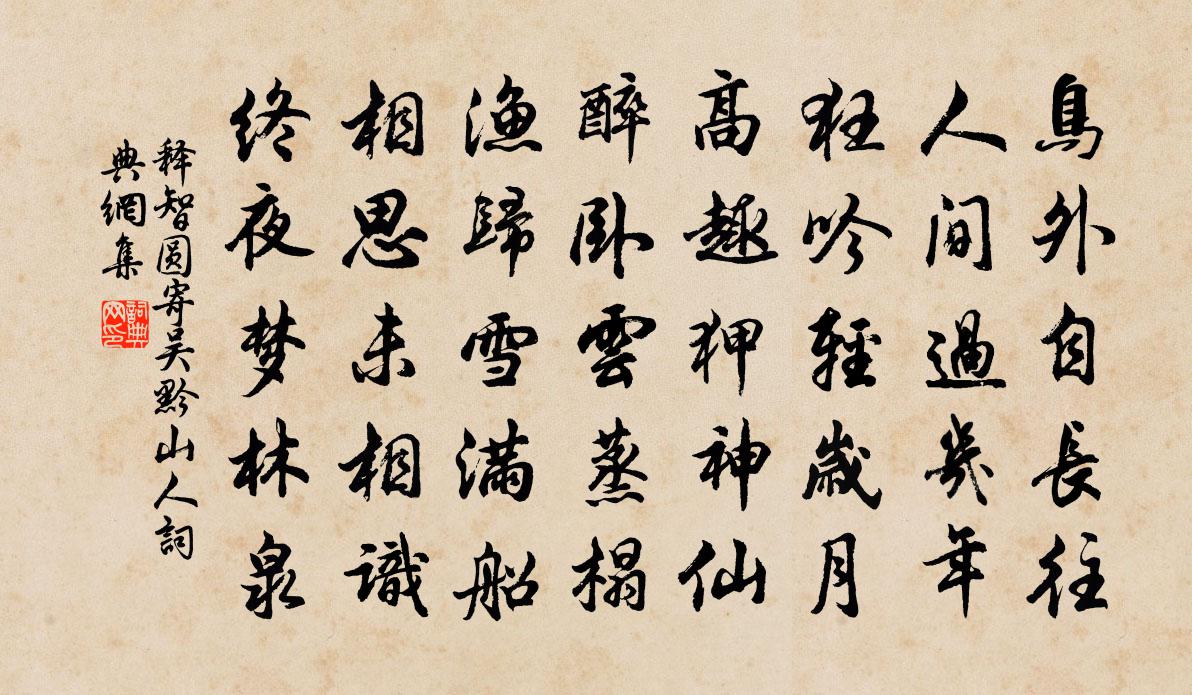 島外自長往
人間過幾年
狂吟輕歲月
高趣狎神仙
醉卧雲蒸榻
渔歸雪滿船
相思未相識
終夜梦林泉
释智圆寄吴黔山人詞
典網集
詞典
网印